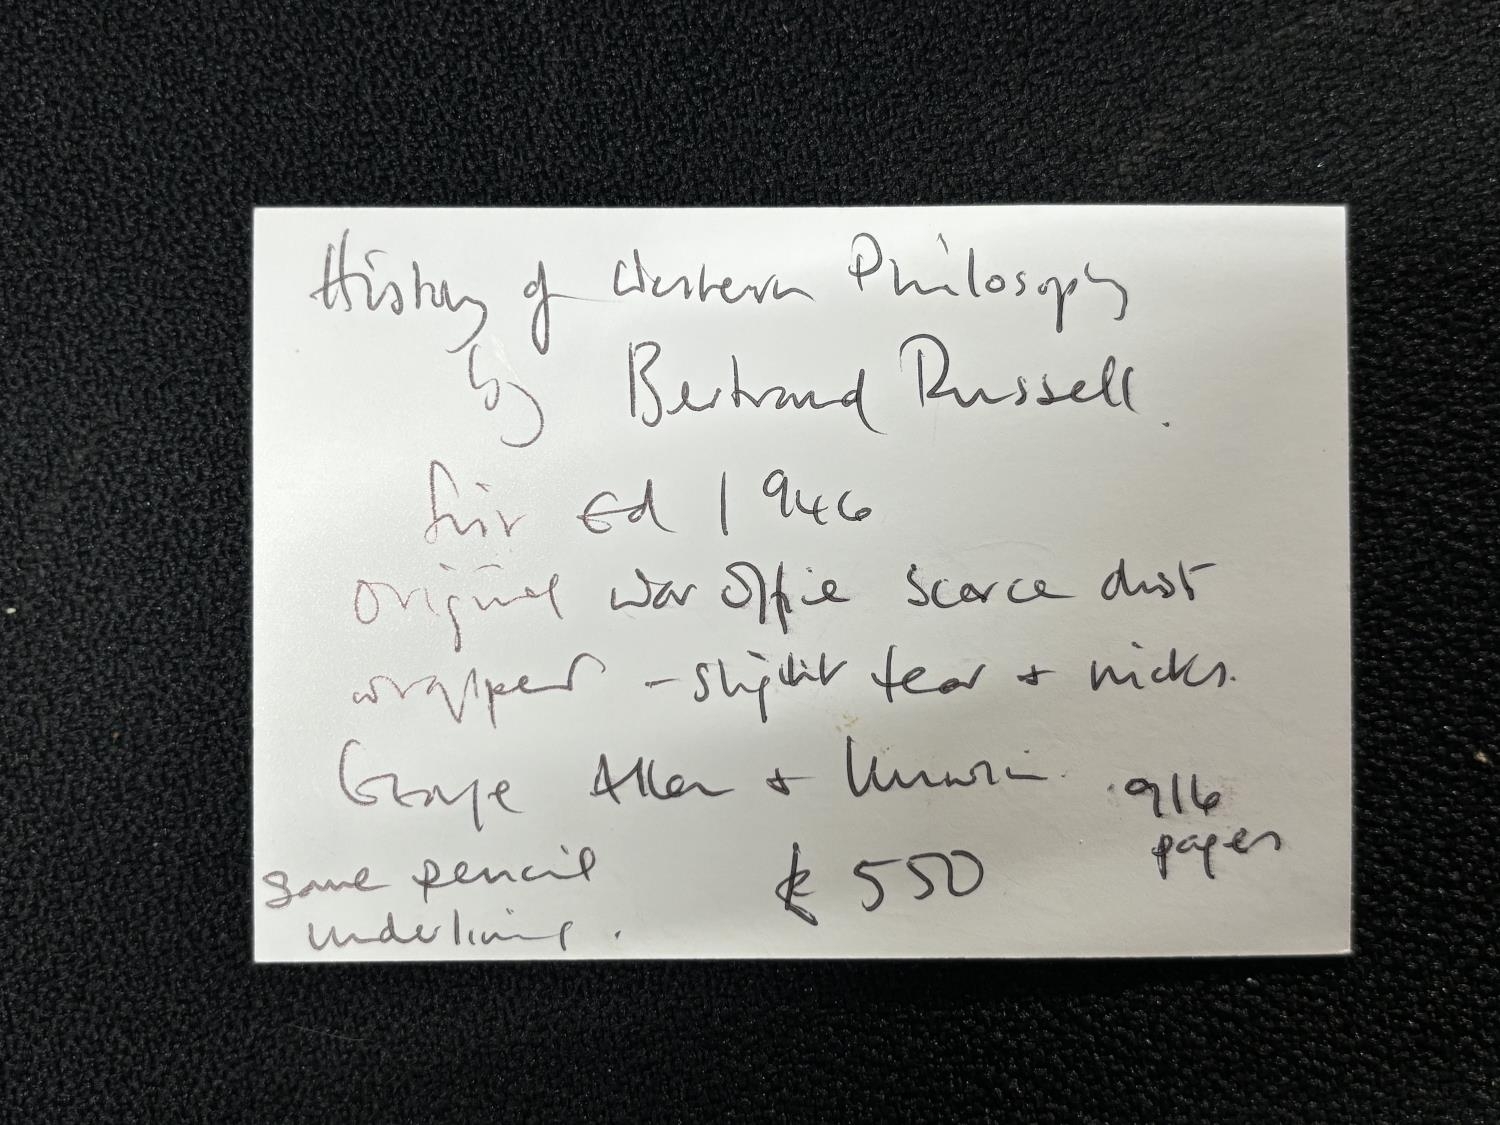 History of Western Philosophy
by Bertrand Russell.
Ed 1946
original war office scarce dust
wrapper - slight tear + nicks.
George Allen + Unwin. 916
pages
some pencil £550
underlining.